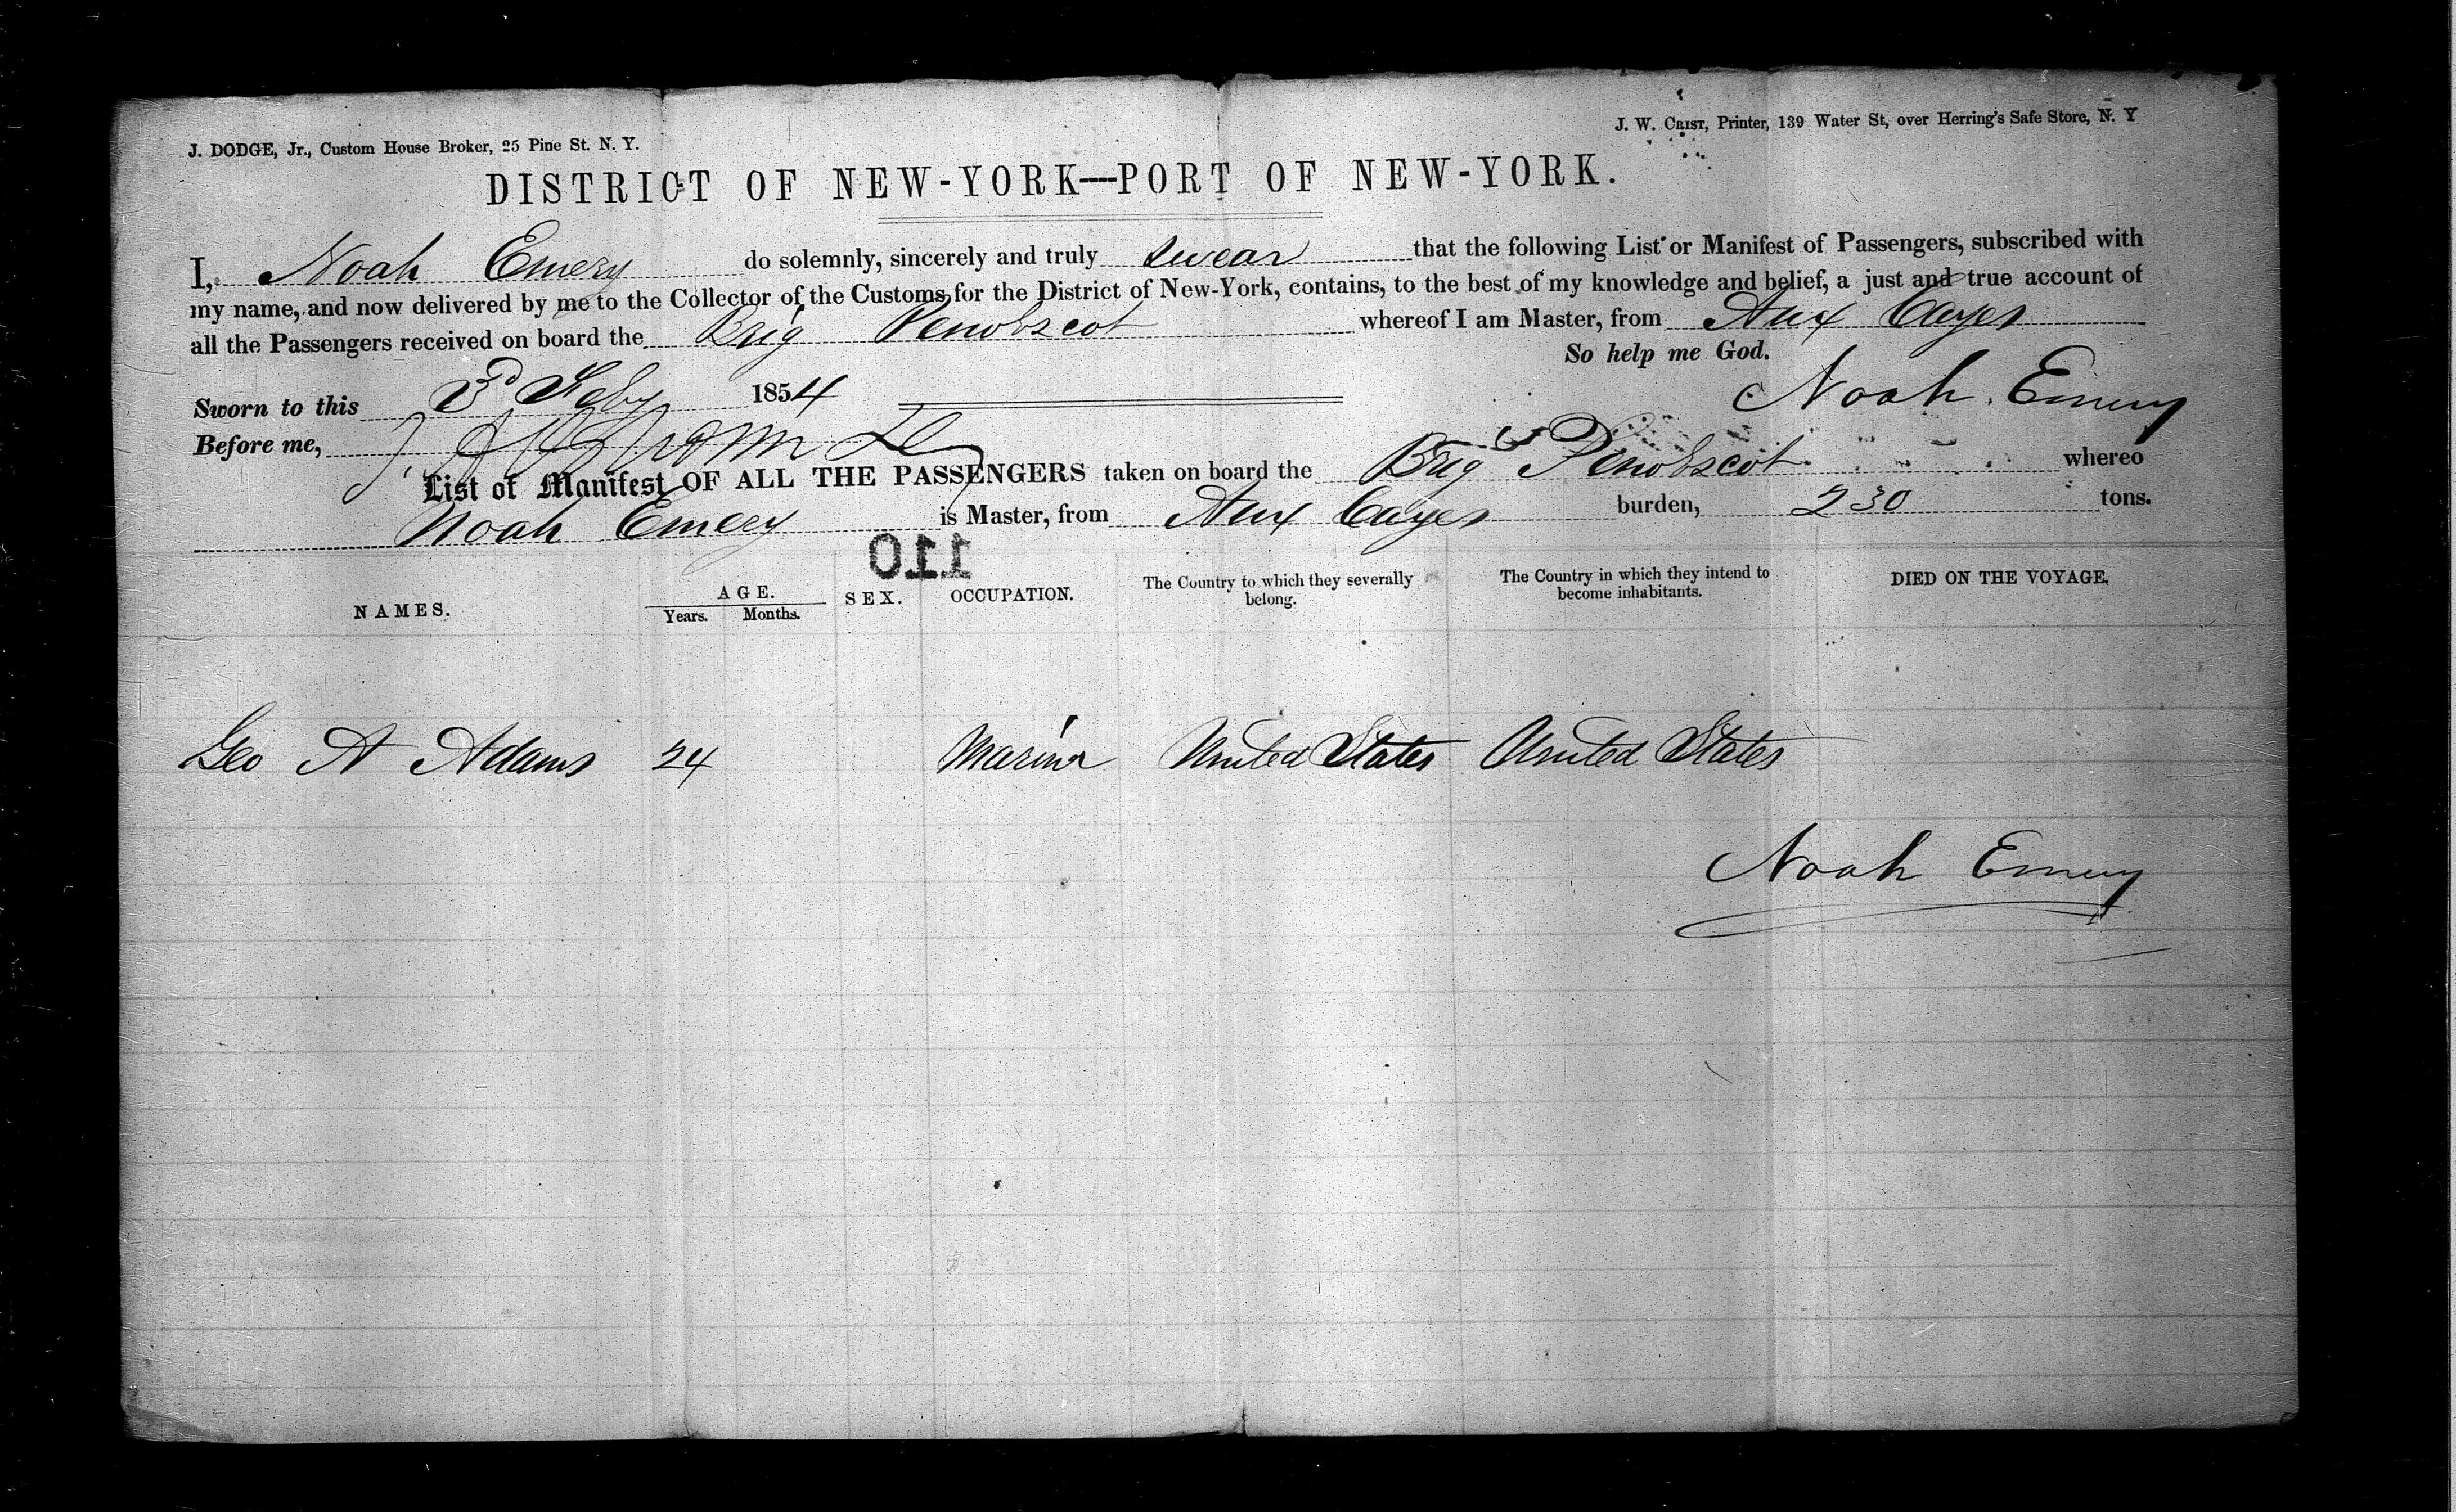 J. DODGE, Jr., Custom House Broker, 25 Pine St. N. Y.
J. W. CRIST, Printer, 139 Water St, over Herring's Safe Store, N. Y
DISTRICT OF NEW-YORK—PORT OF NEW-YORK.
I, Noah Emery do solemnly, sincerely and truly swear that the following List or Manifest of Passengers, subscribed with
my name, and now delivered by me to the Collector of the Customs for the District of New-York, contains, to the best of my knowledge and belief, a just and true account of
all the Passengers received on board the Brig Penobscot whereof I am Master, from Aux Cayes
So help me God.
Sworn to this 3d Feby 1854
Noah Emery
Before me,
List of Manifest OF ALL THE PASSENGERS taken on board the Brig Penobscot whereo
Noah Emery is Master, from Aux Cayes burden, 230 tons.
110
NAMES. AGE. Years. Months. SEX. OCCUPATION. The Country to which they severally belong. The Country in which they intend to become inhabitants. DIED ON THE VOYAGE.
Geo A Adams 24 Mariner United States United States
Noah Emery